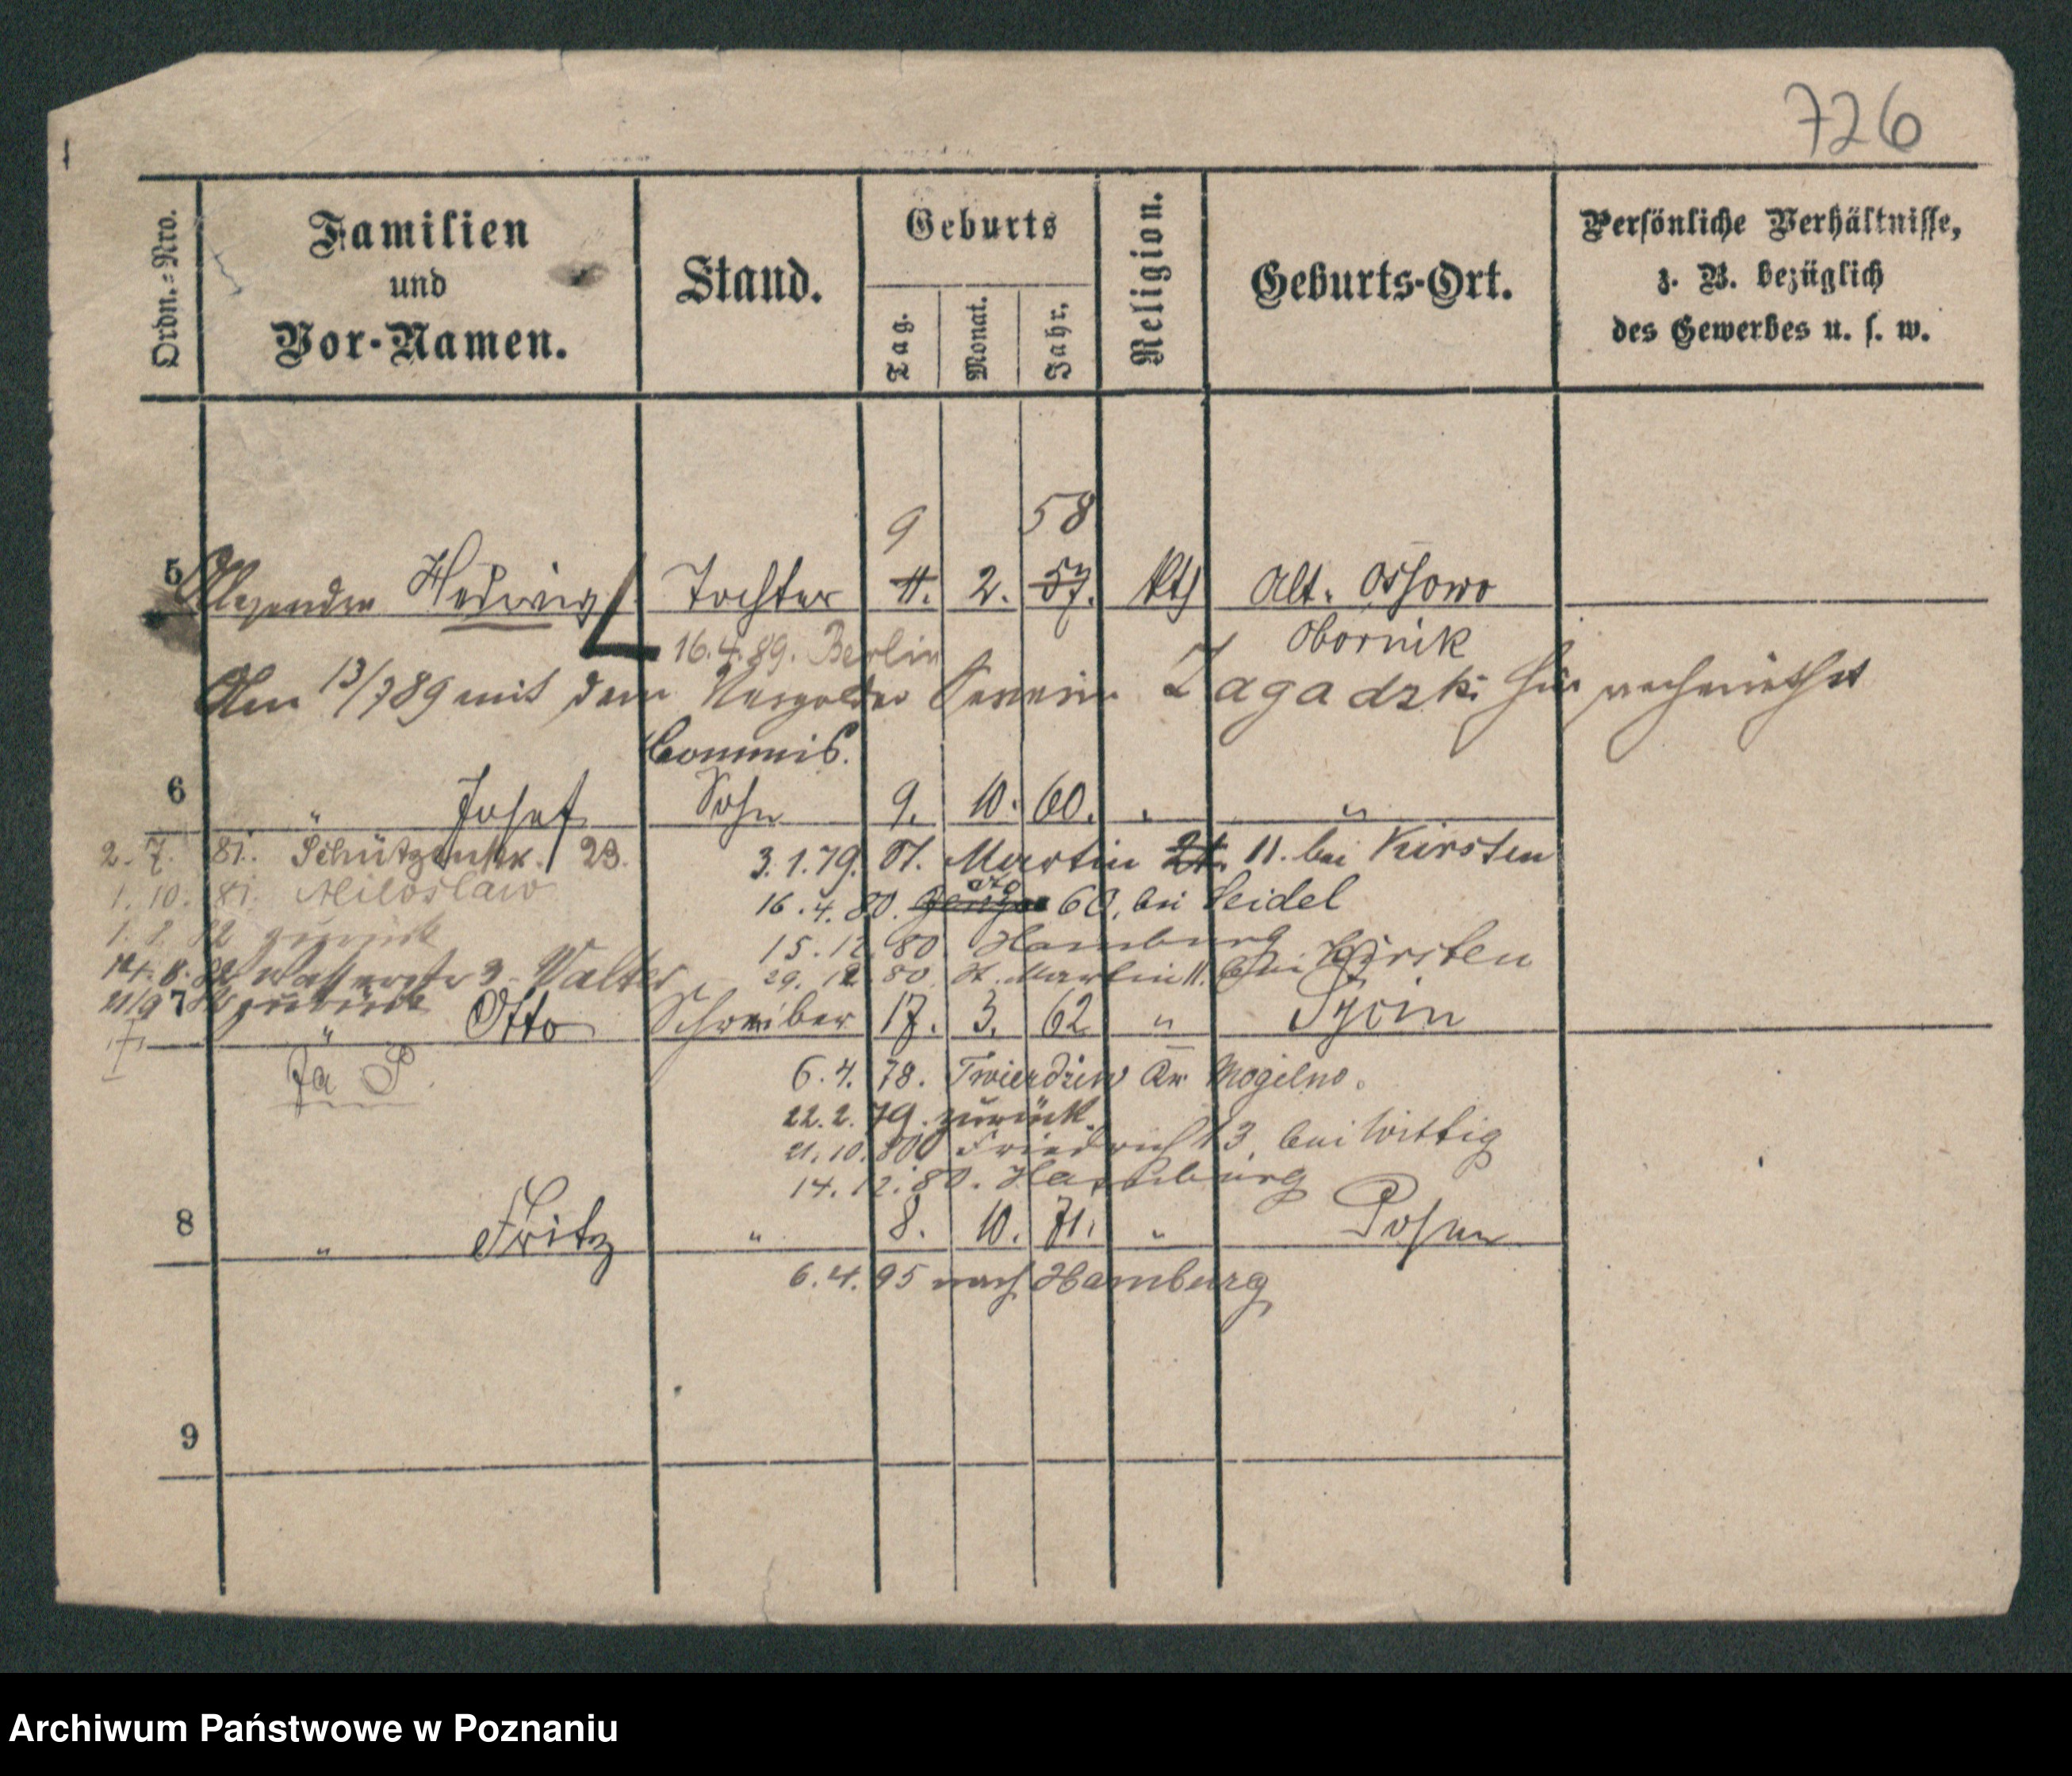 726
Ordn.=Nro.
Familien
und
Vor-Namen.
Stand.
Geburts
Tag.
Monat.
Jahr.
Religion.
Geburts-Ort.
Persönliche Verhältnisse,
z. B. bezüglich
des Gewerbes u. s. w.
9 58
5 Hedwig Tochter 11. 2. 57. kth Alt. Ossowo
16.4.89. Berlin Obornik
13/7 89 mit dem Zagadzki
Commis.
6 " Josef Sohn 9. 10. 60. " "
2. 7. 81. Schützenstr. 23.
3.1.79. St. Martin 24. 11. bei Kirsten
1. 10. 81. Miloslaw
16.4.80. 60. bei Seidel
1. 2. 82 zurück
15.12.80 Hamburg
14. 8. 82 Wasserstr 3. Walter
29. 12. 80. St. Martin 11. bei Kirsten
zurück
7 " Otto Schreiber 17. 3. 62 "
6.4.78. Twierdzin Kr. Mogilno.
22.2.79. zurück.
21.10.80 Friedrichst 3. bei Wittig
14.12.80. Hamburg
8 " Fritz " 8. 10. 71. " Posen
6.4.95 nach Hamburg
9
Archiwum Państwowe w Poznaniu